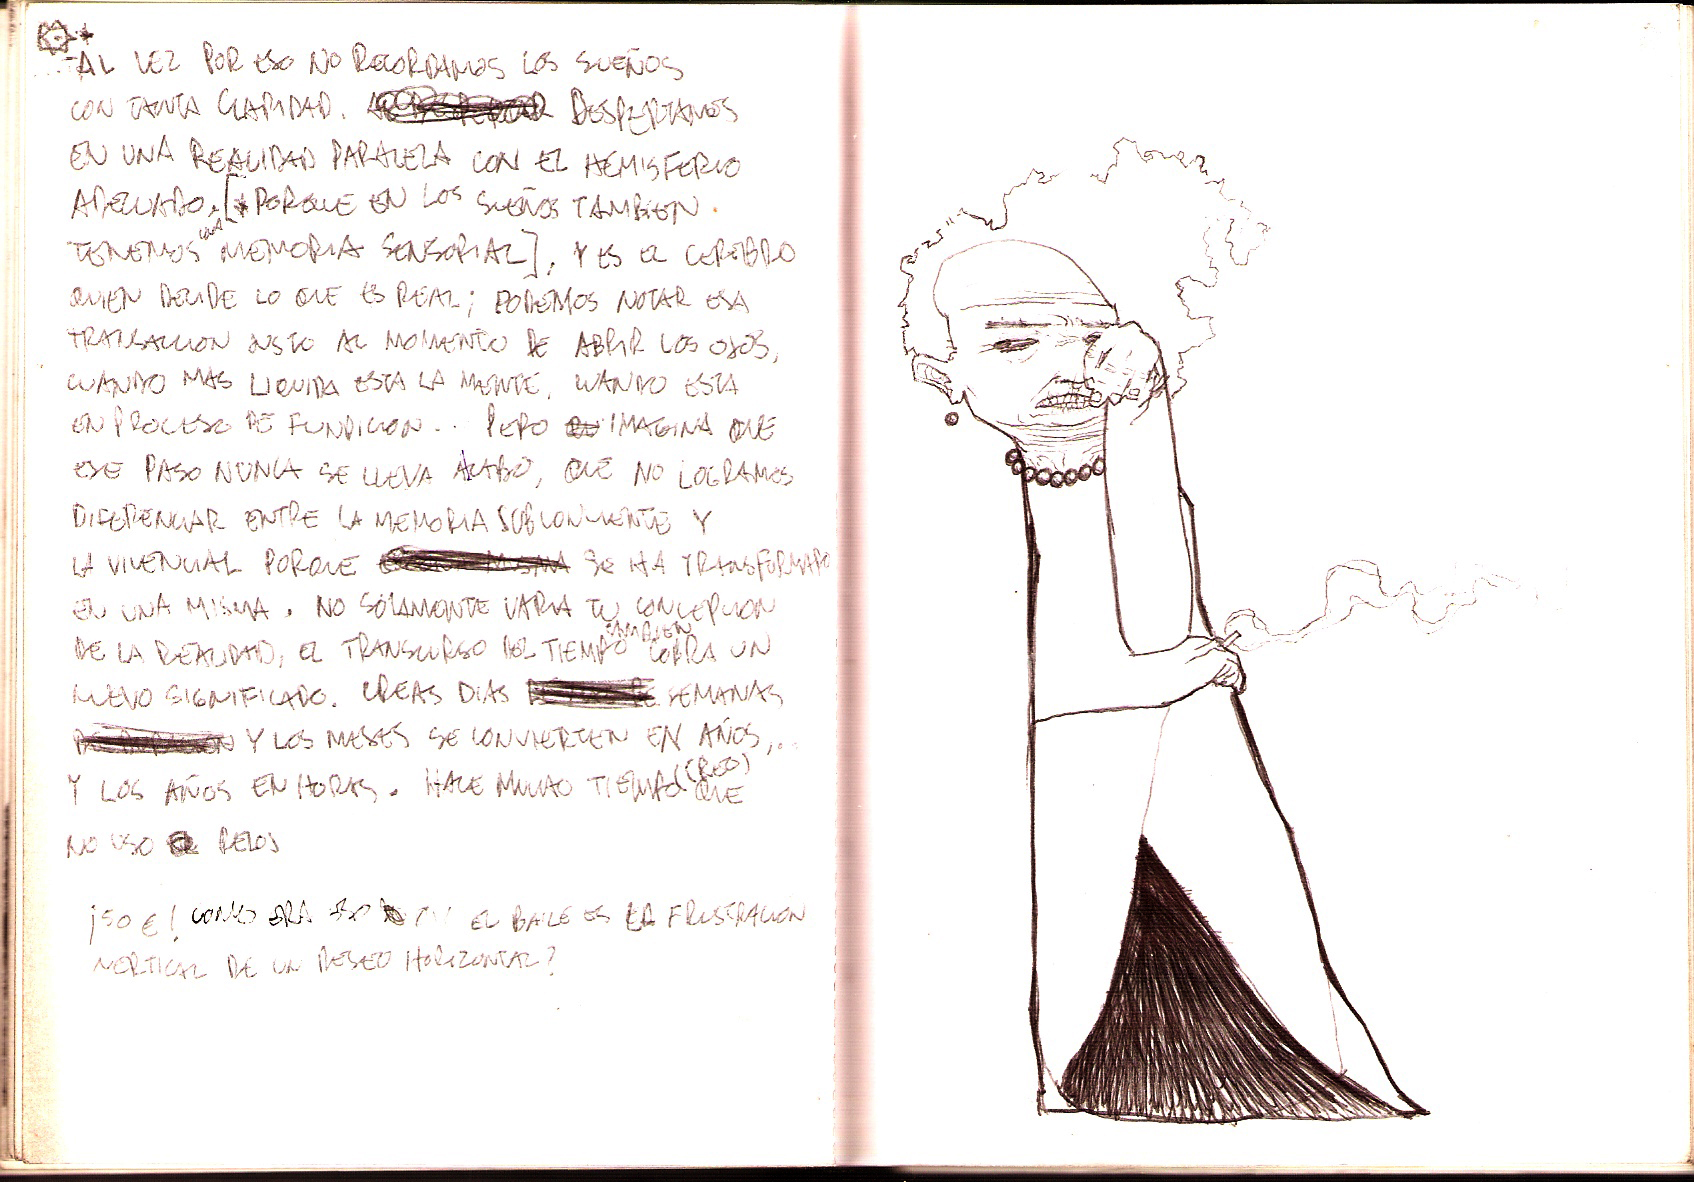 TAL VEZ POR ESO NO RECORDAMOS LOS SUEÑOS
CON TANTA CLARIDAD. DESPERTAMOS
EN UNA REALIDAD PARALELA CON EL HEMISFERIO
ADECUADO, [PORQUE EN LOS SUEÑOS TAMBIEN
TENEMOS UNA MEMORIA SENSORIAL], Y ES EL CEREBRO
QUIEN DECIDE LO QUE ES REAL; PODEMOS NOTAR ESA
TRANSACCION JUSTO AL MOMENTO DE ABRIR LOS OJOS,
CUANDO MAS LIQUIDA ESTA LA MENTE, CUANDO ESTA
EN PROCESO DE FUNDICION... PERO IMAGINA QUE
ESE PASO NUNCA SE LLEVA ACABO, QUE NO LOGRAMOS
DIFERENCIAR ENTRE LA MEMORIA SUBCONCIENTE Y
LA VIVENCIAL PORQUE SE HA TRANSFORMADO
EN UNA MISMA. NO SOLAMENTE VARIA TU CONCEPCION
DE LA REALIDAD, EL TRANSCURSO DEL TIEMPO TAMBIEN COBRA UN
NUEVO SIGNIFICADO. CREAS DIAS SEMANAS
Y LOS MESES SE CONVIERTEN EN AÑOS,..
Y LOS AÑOS EN HORAS. HACE MUCHO TIEMPO (CREO) QUE
NO USO RELOJ
¡50 €! COMO ERA ESO EL BAILE ES LA FRUSTRACIÓN
VERTICAL DE UN DESEO HORIZONTAL?